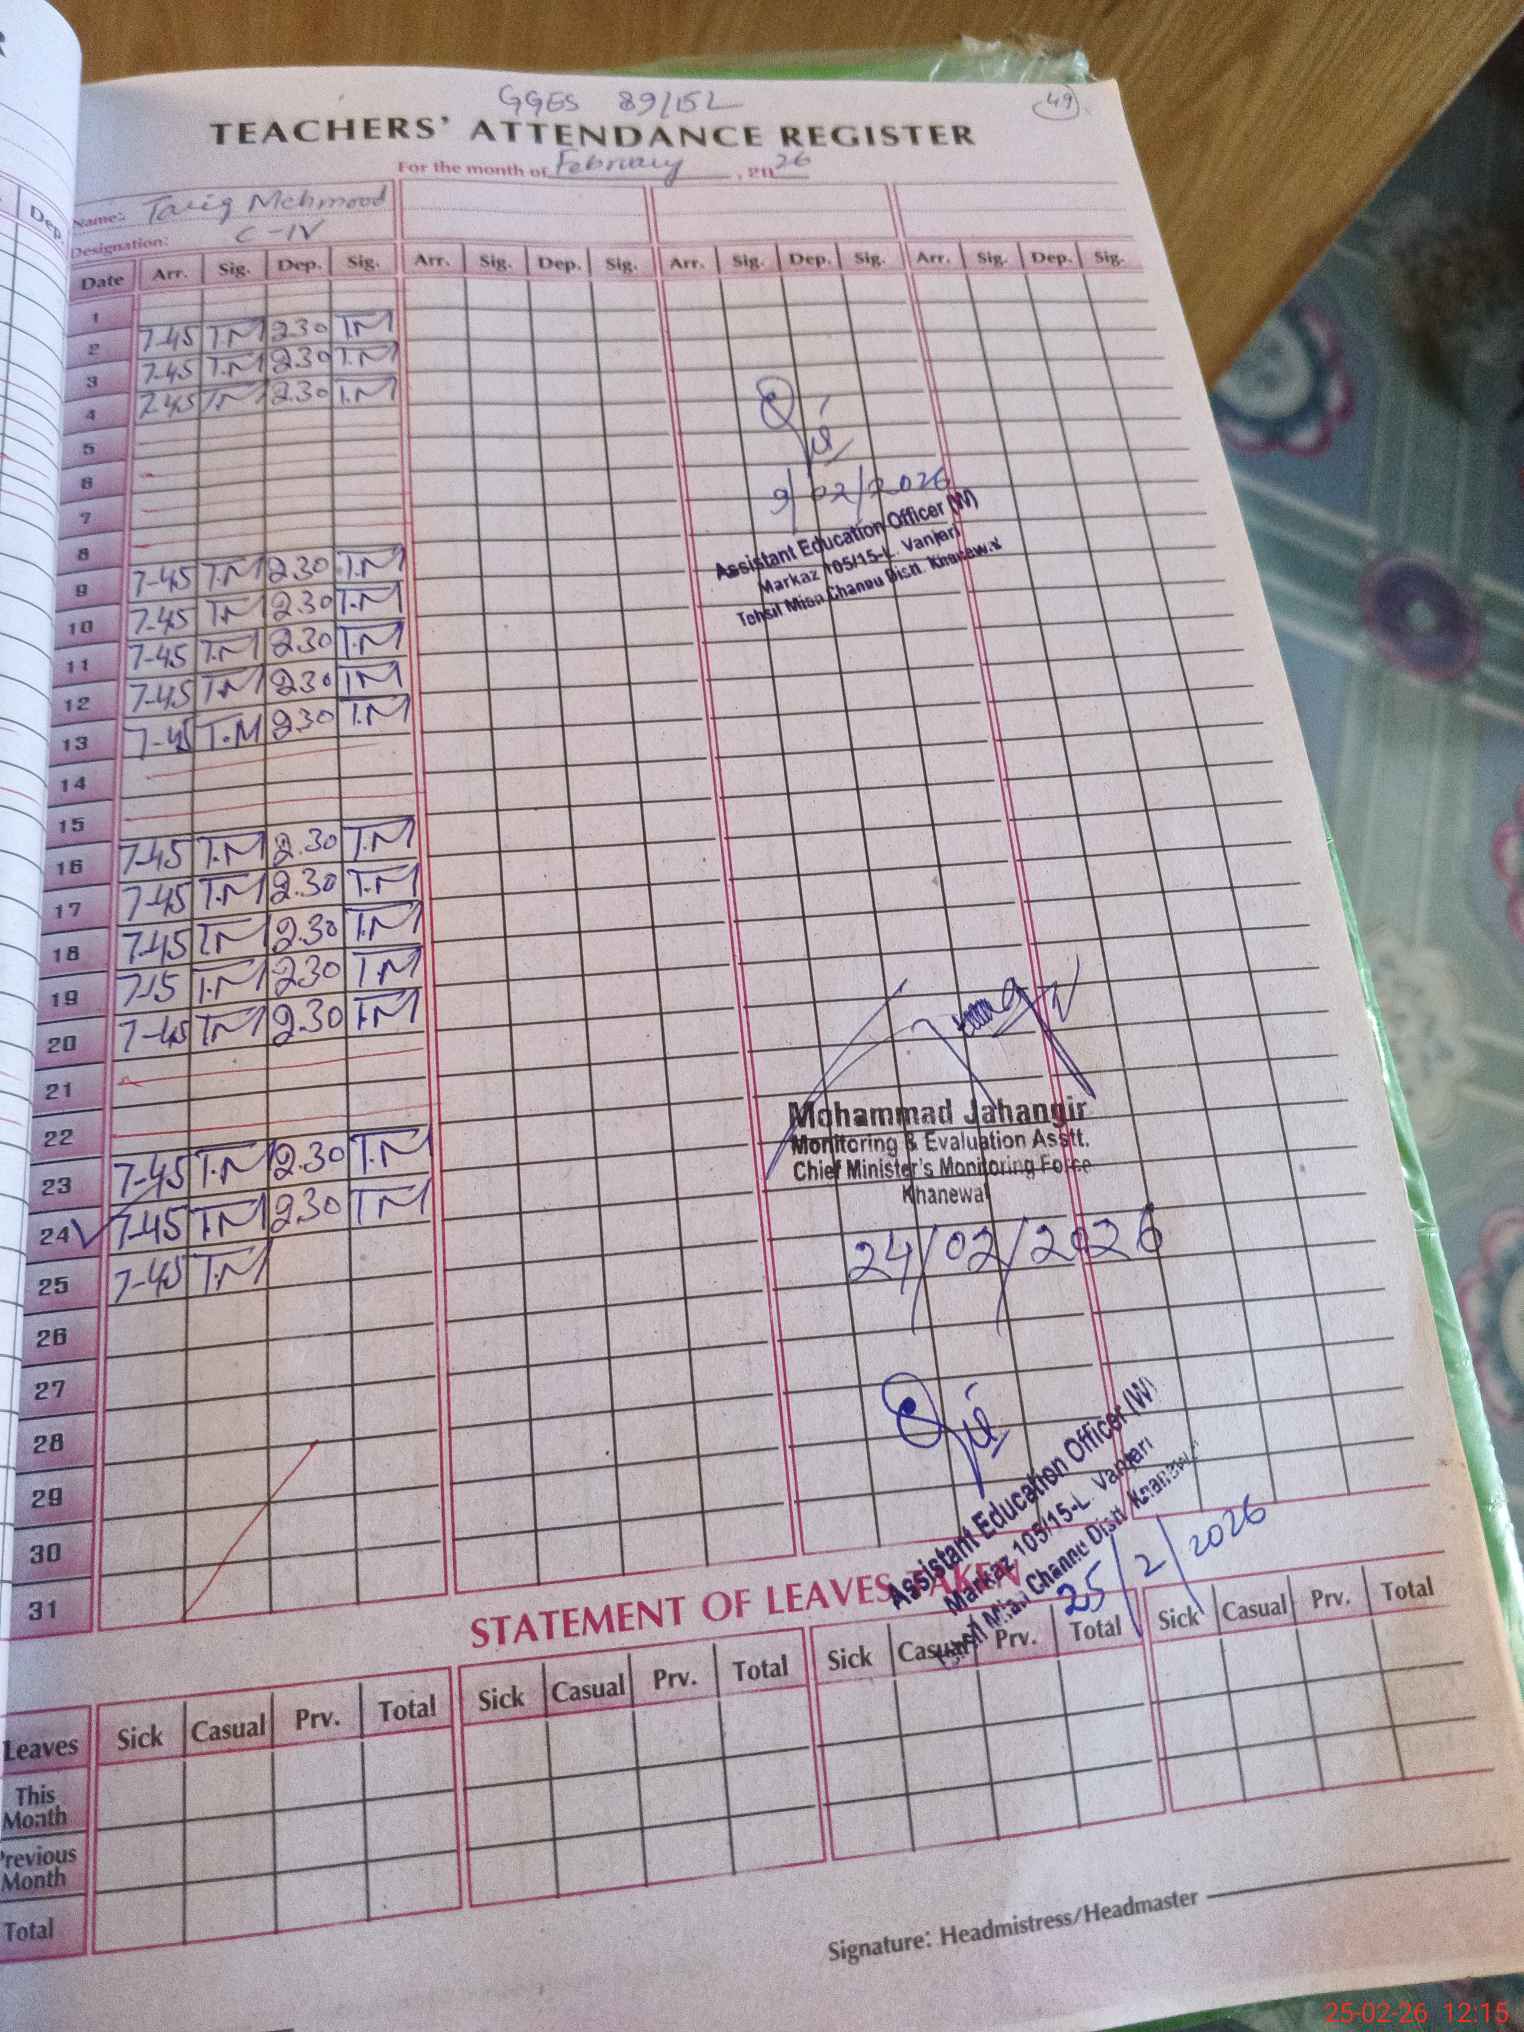 GGES 89/15L
49
TEACHERS' ATTENDANCE REGISTER
For the month of February, 2026
Name: Tariq Mehmood
Designation: C-IV
Dep.
Date Arr. Sig. Dep. Sig. Arr. Sig. Dep. Sig. Arr. Sig. Dep. Sig. Arr. Sig. Dep. Sig.
1
2 7-45 T.M 2.30 T.M
3 7-45 T.M 2.30 T.M
4 7-45 T.M 2.30 T.M
5
6
7
8
9 7-45 T.M 2.30 T.M
10 7-45 T.M 2.30 T.M
11 7-45 T.M 2.30 T.M
12 7-45 T.M 2.30 T.M
13 7-45 T.M 2.30 T.M
14
15
16 7-45 T.M 2.30 T.M
17 7-45 T.M 2.30 T.M
18 7-45 T.M 2.30 T.M
19 7-15 T.M 2.30 T.M
20 7-45 T.M 2.30 T.M
21
22
23 7-45 T.M 2.30 T.M
24 7-45 T.M 2.30 T.M
25 7-45 T.M
26
27
28
29
30
31
9/02/2026
Assistant Education Officer (W)
Markaz 105/15-L. Vanjari
Tehsil Mian Channu Distt. Khanewal
Mohammad Jahangir
Monitoring & Evaluation Asstt.
Chief Minister's Monitoring Force
Khanewal
24/02/2026
Assistant Education Officer (W)
Markaz 105/15-L. Vanjari
Tehsil Mian Channu Distt. Khanewal
25/2/2026
STATEMENT OF LEAVES TAKEN
Leaves Sick Casual Prv. Total Sick Casual Prv. Total Sick Casual Prv. Total Sick Casual Prv. Total
This Month
Previous Month
Total
Signature: Headmistress/Headmaster
25-02-26 12:15